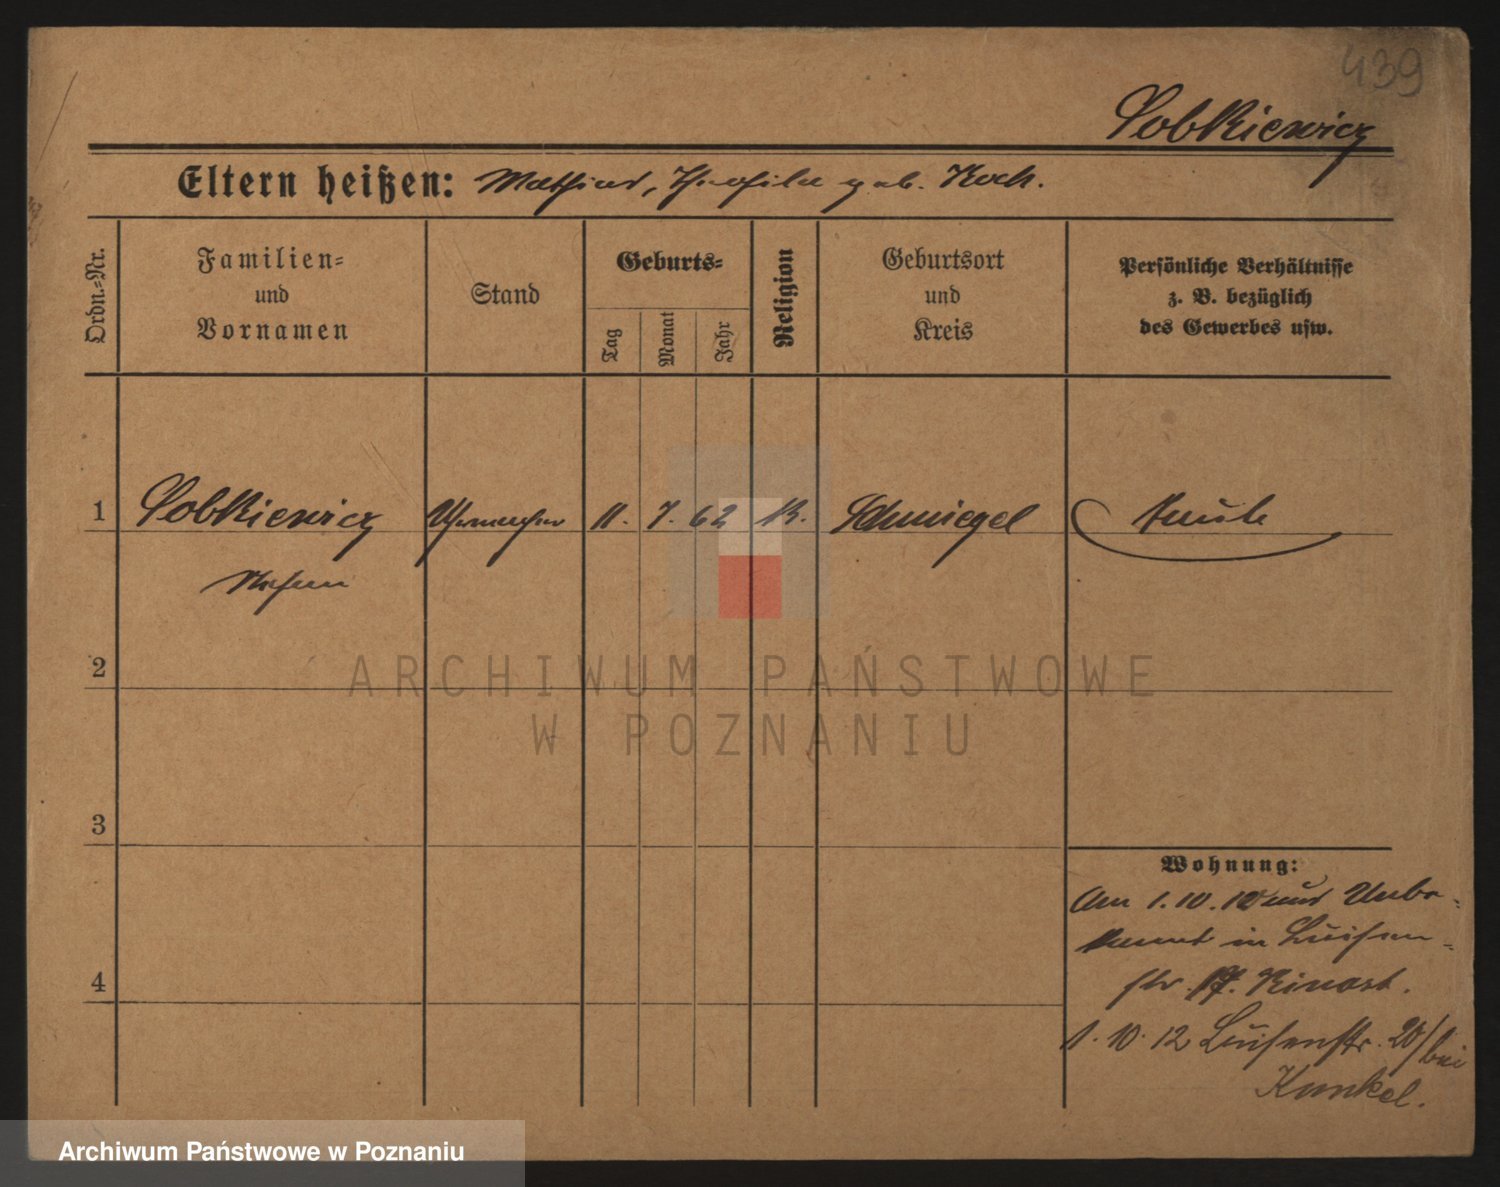 439
Sobkiewicz
Eltern heißen: Mathias, Theofila geb. Koch.
Ordn.-Nr.
Familien-
und
Vornamen
Stand
Geburts-
Tag
Monat
Jahr
Religion
Geburtsort
und
Kreis
Persönliche Verhältnisse
z. B. bezüglich
des Gewerbes usw.
1 Sobkiewicz Uhrmacher 11. 7. 62 K. Schmiegel
Stefan
2
3
4
Wohnung:
Am 1.10.10 aus Unbe-
kannt in Luisen-
str. 17. Kinast.
1.10.12 Luisenstr. 20/ bei
Kunkel.
ARCHIWUM PAŃSTWOWE
W POZNANIU
Archiwum Państwowe w Poznaniu